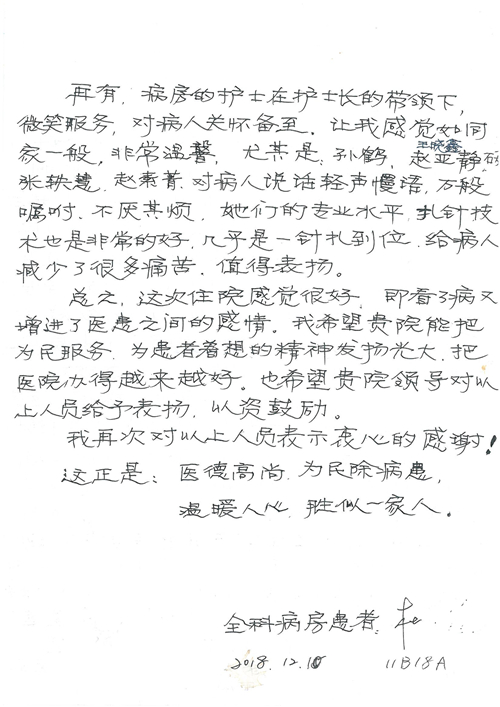 再有，病房的护士在护士长的带领下，
微笑服务，对病人关怀备至。让我感觉如同
王晓鑫
家一般，非常温馨，尤其是：孙鹤，赵亚静
张轶慧，赵素菁，对病人说话轻声慢语，万般
嘱咐，不厌其烦，她们的专业水平，扎针技
术也是非常的好，几乎是一针扎到位，给病人
减少了很多痛苦，值得表扬。
总之，这次住院感觉很好，即看了病又
增进了医患之间的感情。我希望贵院能把
为民服务，为患者着想的精神发扬光大，把
医院办得越来越好。也希望贵院领导对以
上人员给予表扬，以资鼓励。
我再次对以上人员表示衷心的感谢！
这正是：医德高尚，为民除病患，
温暖人心，胜似一家人。
全科病房患者：
2018.12.10 11B18A